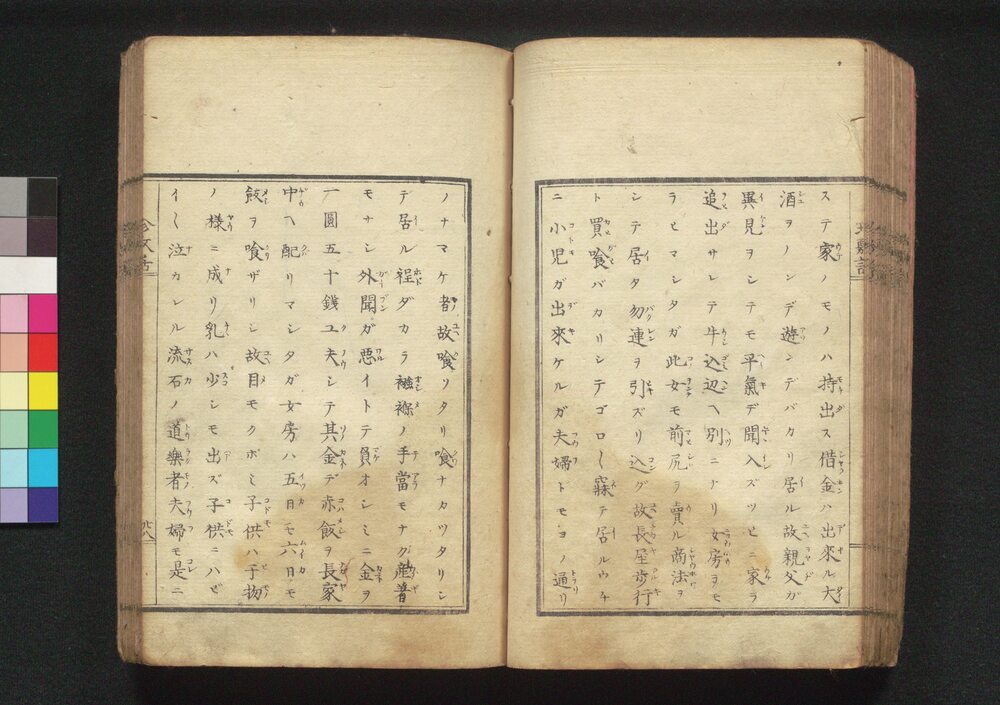 ステ家ノモノハ持出ス借金ハ出來ル大
酒ヲノンデ遊ンデバカリ居ル故親父ガ
異見ヲシテモ平氣デ聞入ズツヒニ家ヲ
追出サレテ牛込辺ヘ別ニナリ女房ヲモ
ラヒマシタガ此女モ前尻ヲ賣ル商法ヲ
シテ居タ勿連ヲ引ズリ込ダ故長屋歩行
ト買喰バカリシテゴロ〳〵寐テ居ルウチ
ニ小児ガ出來ケルガ夫婦トモヨノ通リ
ノナマケ者故喰ツタリ喰ナカツタリシ
デ居ル程ダカラ襁褓ノ手當モナク産普
モナシ外聞ガ悪イトテ負オシミニ金ヲ
一圓五十錢ユ夫シテ其金デ赤飯ヲ長家
中ヘ配リマシタガ女房ハ五日モ六日モ
飯ヲ喰ザリシ故目モクボミ子供ハ干物
ノ様ニ成リ乳ハ少シモ出ズ子供ニハゼ
イ〳〵泣カレル流石ノ道樂者夫婦モ是ニ
廿八